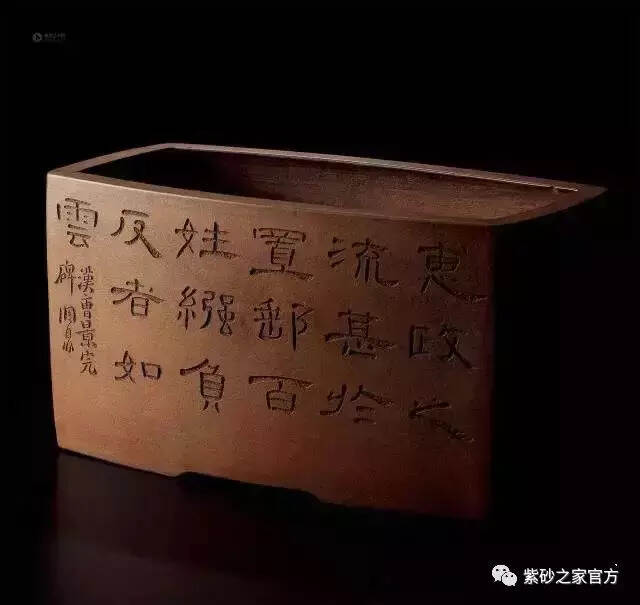 惠政之
流甚於
置郵百
姓繦負
反者如
雲
漢曹景完
碑
紫砂之家官方